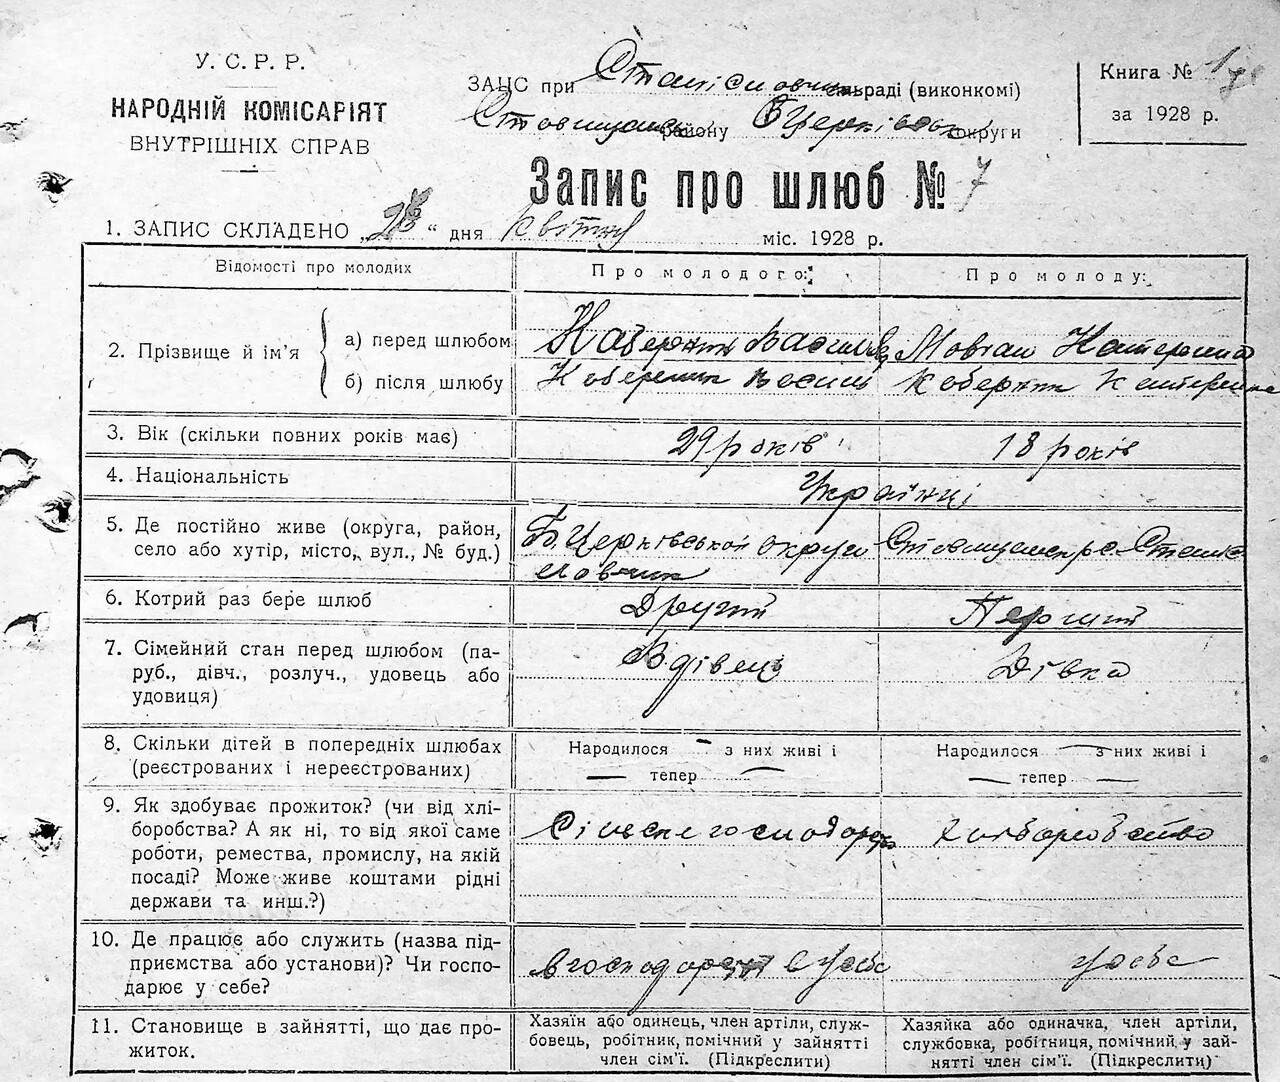 У. С. Р. Р.
НАРОДНІЙ КОМІСАРІЯТ
ВНУТРІШНІХ СПРАВ
ЗАГС при раді (виконкомі)
району округи
Книга №
за 1928 р.
Запис про шлюб № 7
1. ЗАПИС СКЛАДЕНО „ “ дня квітня міс. 1928 р.
Відомості про молодих
Про молодого:
Про молоду:
2. Прізвище й ім'я
а) перед шлюбом
Василь
Мовчан Катерина
б) після шлюбу
Василь
Катерина
3. Вік (скільки повних років має)
29 років
18 років
4. Національність
Українці
5. Де постійно живе (округа, район,
село або хутір, місто, вул., № буд.)
Б. Церківської округи
6. Котрий раз бере шлюб
Другий
Перший
7. Сімейний стан перед шлюбом (па-
руб., дівч., розлуч., удовець або
удовиця)
Вдівець
Дівка
8. Скільки дітей в попередніх шлюбах
(реєстрованих і нереєстрованих)
Народилося — з них живі і
— тепер —
Народилося — з них живі і
— тепер —
9. Як здобуває прожиток? (чи від хлі-
боробства? А як ні, то від якої саме
роботи, ремества, промислу, на якій
посаді? Може живе коштами рідні
держави та инш.?)
10. Де працює або служить (назва під-
приємства або установи)? Чи госпо-
дарює у себе?
у себе
11. Становище в зайнятті, що дає про-
житок.
Хазяїн або одинець, член артілі, служ-
бовець, робітник, помічний у зайнятті
член сім'ї. (Підкреслити)
Хазяйка або одиначка, член артілі,
службовка, робітниця, помічний у зай-
нятті член сім'ї. (Підкреслити)